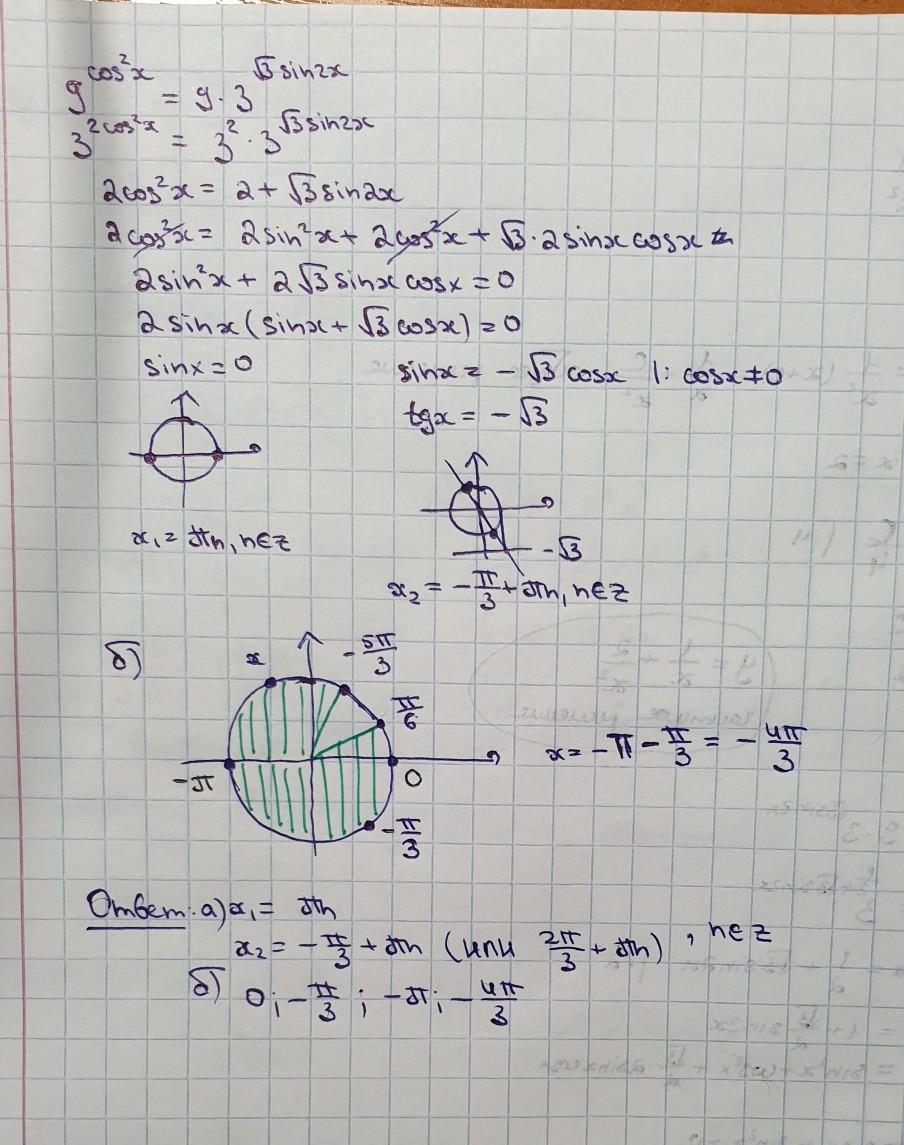 9^{cos²x} = 9 · 3^{√3 sin2x}
3^{2cos²x} = 3² · 3^{√3 sin2x}
2cos²x = 2 + √3 sin2x
2cos²x = 2sin²x + 2cos²x + √3 · 2sinx cosx
2sin²x + 2√3 sinx cosx = 0
2sinx(sinx + √3 cosx) = 0
sinx = 0
sinx = -√3 cosx |: cosx ≠ 0
tgx = -√3
-√3
x₁ = πn, n∈z
x₂ = -π/3 + πn, n∈z
б)
x
-5π/3
π/6
-π
0
-π/3
x = -π - π/3 = -4π/3
Ответ: а) x₁ = πn
x₂ = -π/3 + πn (или 2π/3 + πn), n∈z
б) 0; -π/3; -π; -4π/3